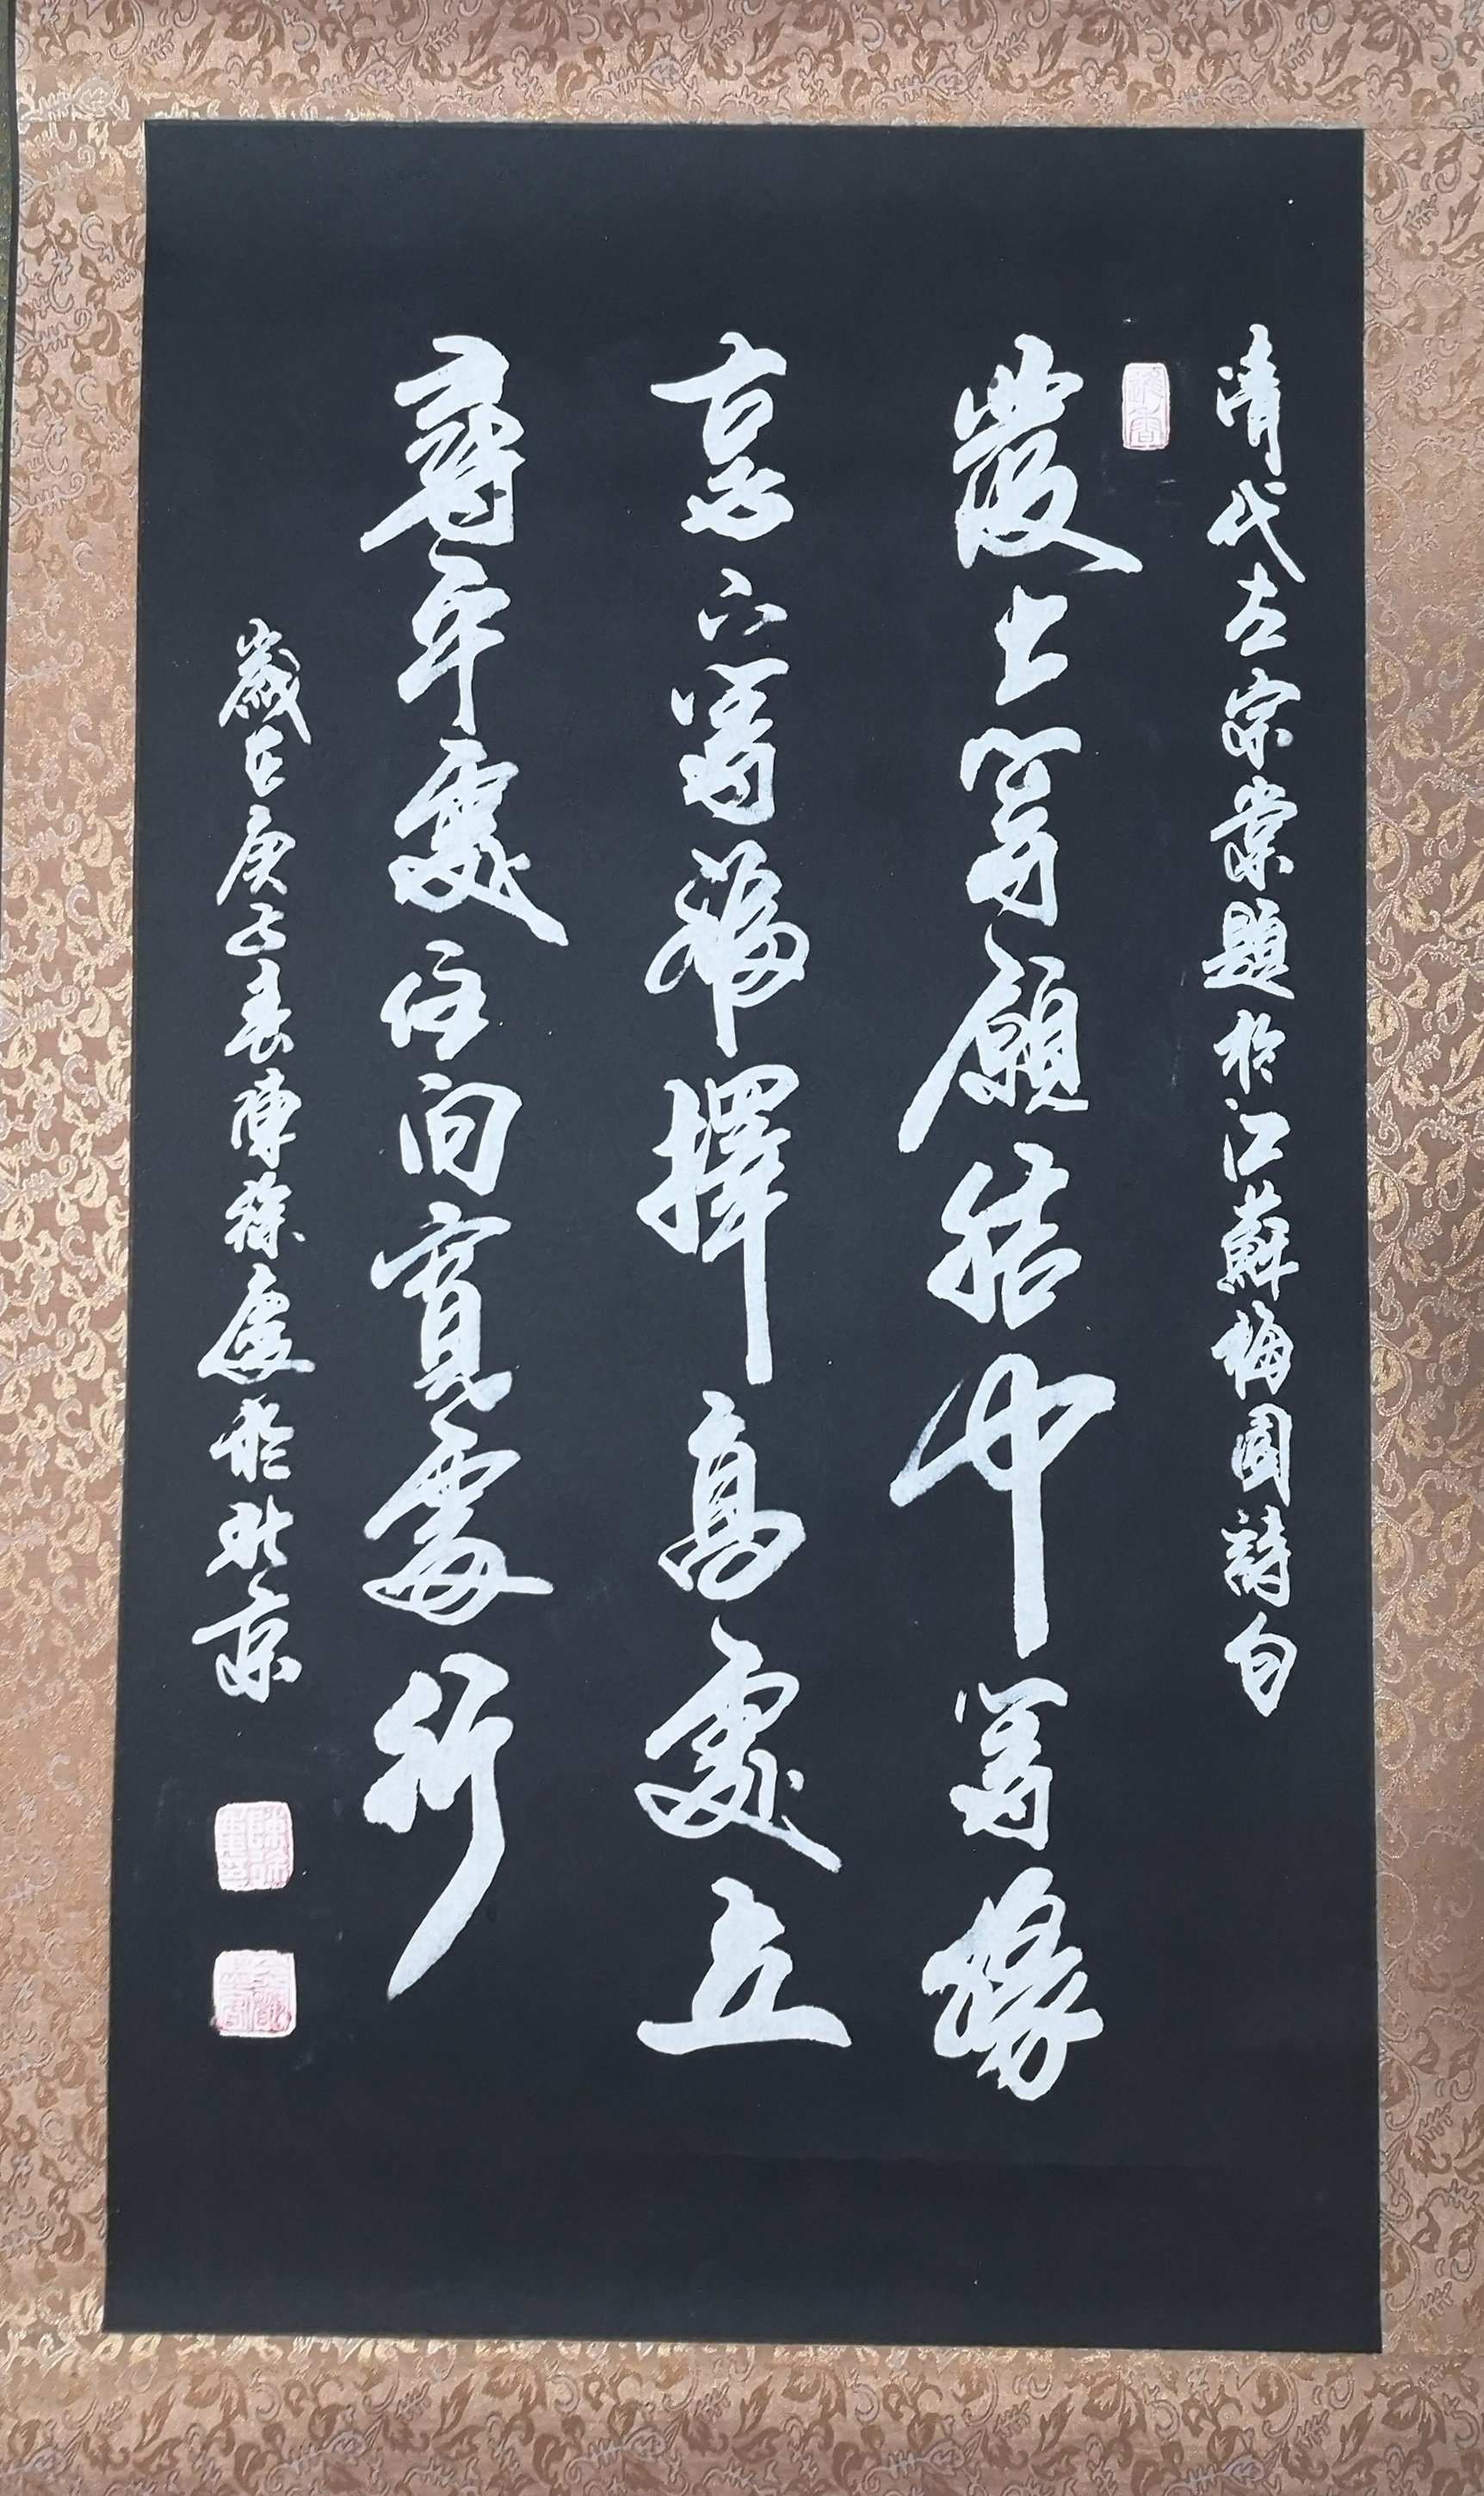 清代左宗棠題於江蘇梅園詩句
發上等願結中等緣
享下等福擇高處立
尋平處住向寬處行
歲在庚子春陳徐慶於北京